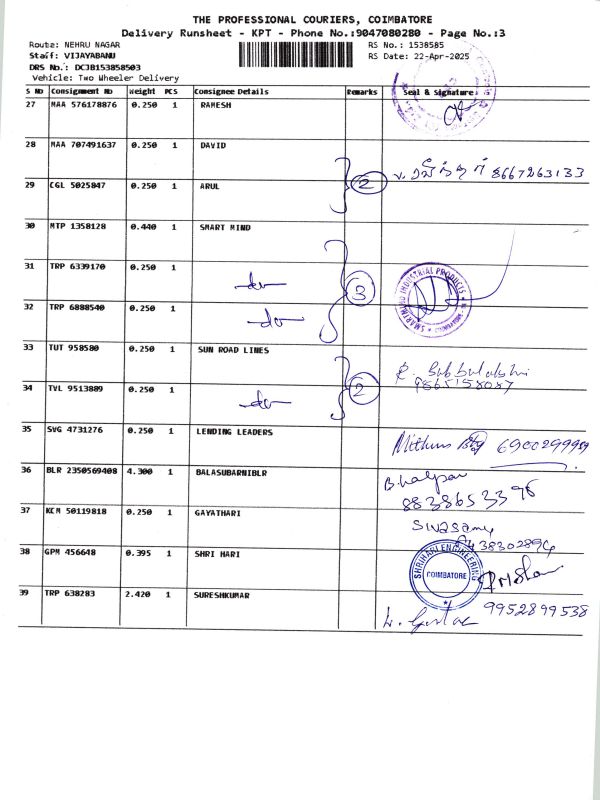 THE PROFESSIONAL COURIERS, COIMBATORE
Delivery Runsheet - KPT - Phone No.:9047080280 - Page No.:3
Route: NEHRU NAGAR RS No.: 1538585
Staff: VIJAYABANU RS Date: 22-Apr-2025
DRS No.: DCJB153858503
Vehicle: Two Wheeler Delivery
S No Consignment No Weight PCS Consignee Details Remarks Seal & Signature
27 MAA 576178876 0.250 1 RAMESH
28 MAA 707491637 0.250 1 DAVID
29 CGL 5025847 0.250 1 ARUL 2 8667263133
30 MTP 1358128 0.440 1 SMART MIND
31 TRP 6339170 0.250 1 -do- 3 SMARTMIND INDUSTRIAL PRODUCTS
32 TRP 6888540 0.250 1 -do-
33 TUT 958580 0.250 1 SUN ROAD LINES
34 TVL 9513889 0.250 1 -do- 2 9865158087
35 SVG 4731276 0.250 1 LENDING LEADERS Mithun 6900299959
36 BLR 2350569408 4.300 1 BALASUBARNIBLR
8838653396
37 KCM 50119818 0.250 1 GAYATHARI Sivasamy
38302894
38 GPM 456648 0.395 1 SHRI HARI SHRIHARI ENGINEERING COIMBATORE
39 TRP 638283 2.420 1 SURESHKUMAR 9952899538